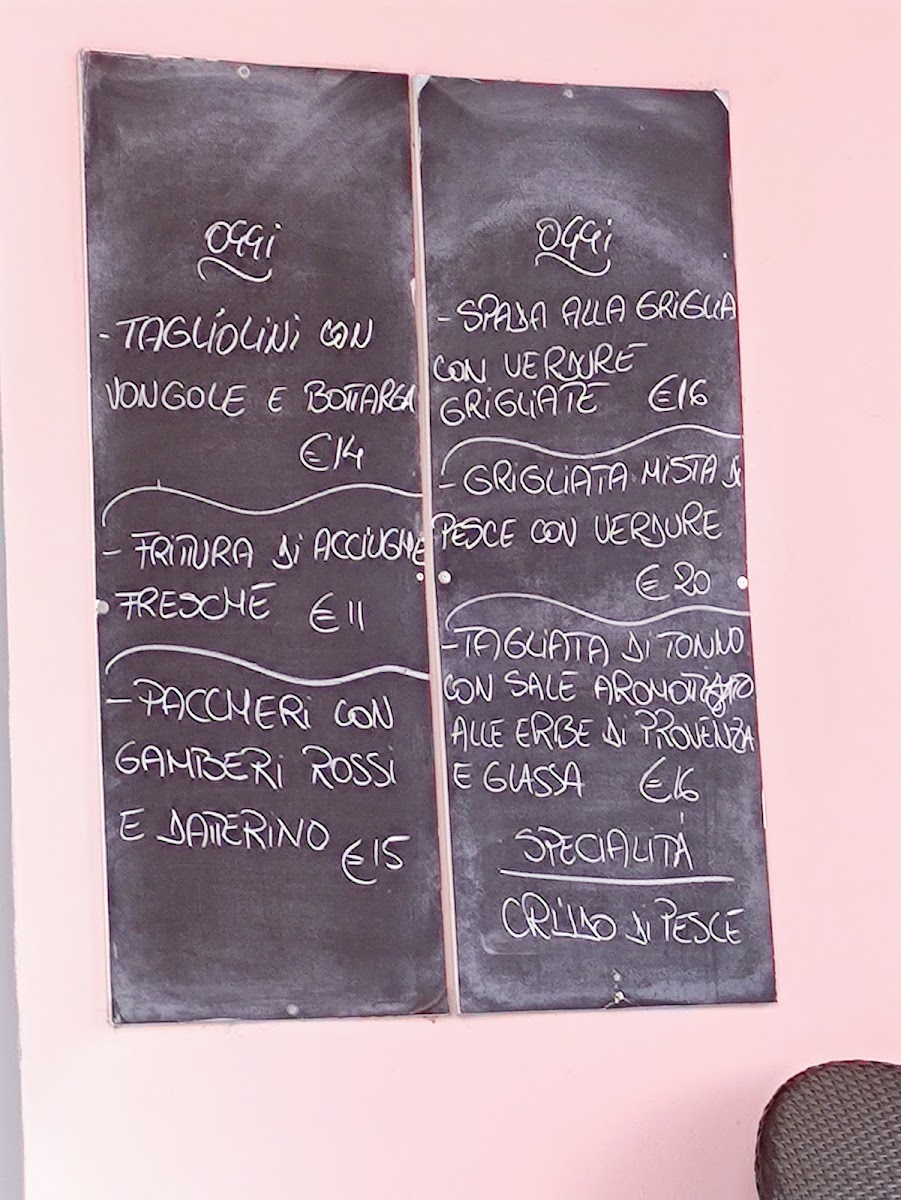 OGGI
- TAGLIOLINI CON
VONGOLE E BOTTARGA
€14
- FRITTURA DI ACCIUGHE
FRESCHE €11
- PACCHERI CON
GAMBERI ROSSI
E DATTERINO €15
OGGI
- SPADA ALLA GRIGLIA
CON VERDURE
GRIGLIATE €16
- GRIGLIATA MISTA DI
PESCE CON VERDURE
€20
- TAGLIATA DI TONNO
CON SALE AROMOTIZZATO
ALLE ERBE DI PROVENZA
E GLASSA €16
SPECIALITÀ
CRUDO DI PESCE